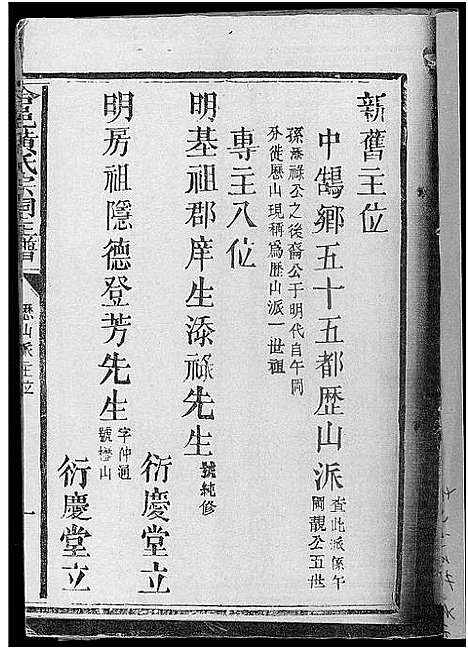 新舊主位
中鵠鄉五十五都歷山派 查此派係午
岡靚公五世
孫添祿公之後裔公于明代自午岡
外徙歷山現稱爲歷山派一世祖
專主八位
明基祖郡庠生添祿先生 號純修
衍慶堂立
明房祖隱德登芳先生 字仲通
號懋山
衍慶堂立
邑黃氏宗祠主譜
歷山派主位
一